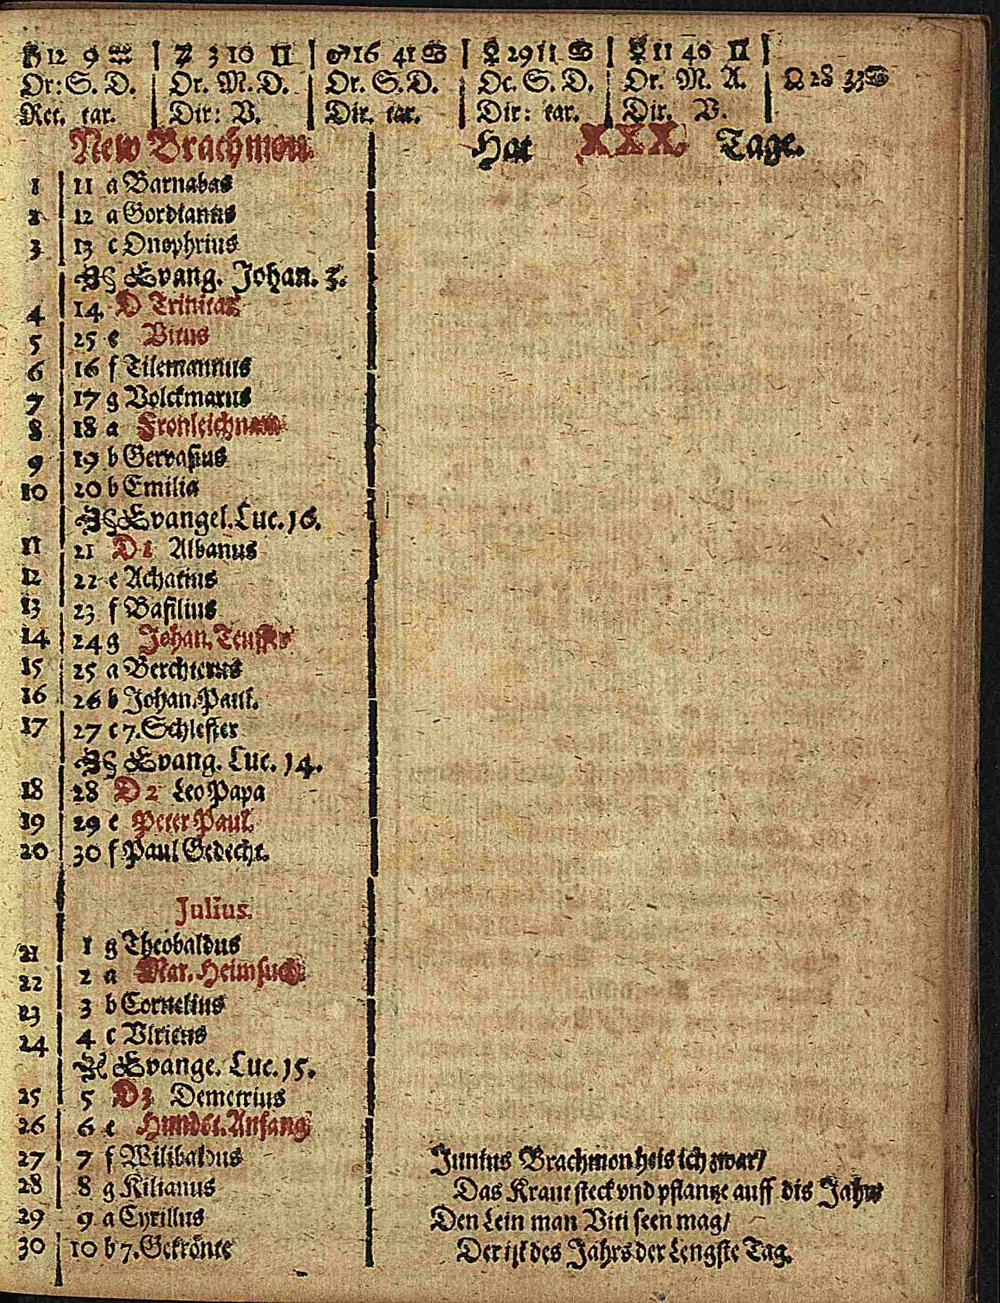 ♄12 9 ♒ | ♃ 3 10 ♊ | ♂16 41 ♋ | ♀ 29 11 ♋ | ☿ 11 40 ♊ | ☊ 28 33 ♋
Or: S. D. | Or. M. D. | Or. S. D. | Oc. S. D. | Or. M. A.
Ret. tar. | Dir: V. | Dir. tar. | Dir: tar. | Dir. V.
New Brachmon. Hat XXX. Tage.
1 11 a Barnabas
2 12 a Gordianus
3 13 c Onophrius
Evang. Johan. 3.
4 14 D Trinitas
5 25 e Vitus
6 16 f Tilemannus
7 17 g Volckmarus
8 18 a Fronleichnam
9 19 b Gervasius
10 20 b Emilia
Evangel. Luc. 16.
11 21 D 1 Albanus
12 22 e Achatius
13 23 f Basilius
14 24 g Johan. Teuffer
15 25 a Berchterus
16 26 b Johan. Paul.
17 27 c 7. Schleffer
Evang. Luc. 14.
18 28 D 2 Leo Papa
19 29 e Peter Paul.
20 30 f Paul Gedecht.
Julius.
21 1 g Theobaldus
22 2 a Mar. Heimsuch.
23 3 b Cornelius
24 4 c Vlricus
Evange. Luc. 15.
25 5 D 3 Demetrius
26 6 e Hundst. Anfang
27 7 f Wilibaldus
28 8 g Kilianus
29 9 a Cyrillus
30 10 b 7. Gekrönte
Junius Brachmon heis ich zwar/
Das Kraut steck vnd pflantze auff dis Jahr
Den Lein man Viti seen mag/
Der ist des Jahrs der Lengste Tag.